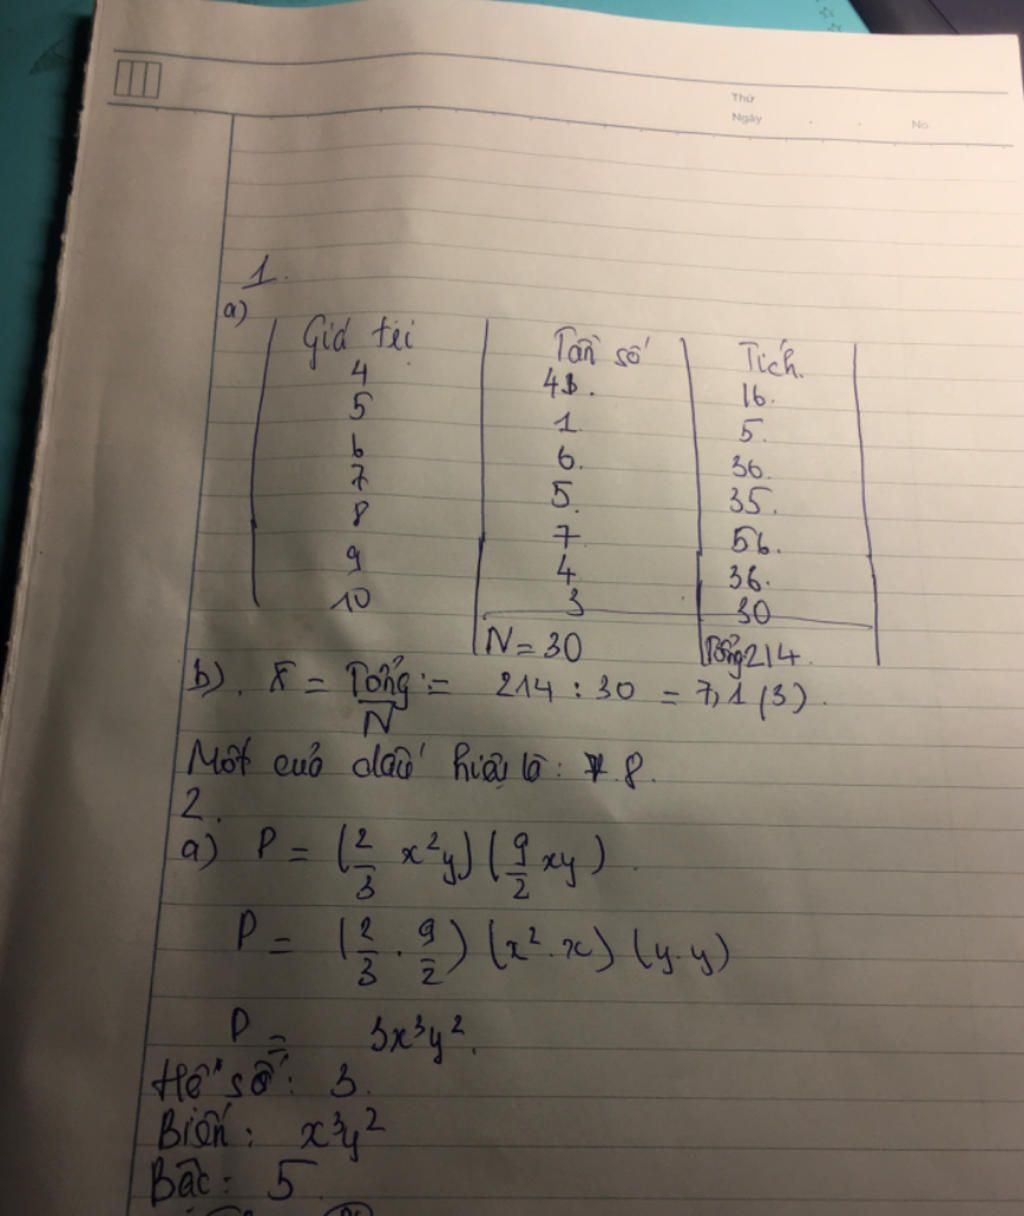 Thứ
Ngày . . No
1.
a)
Giá trị Tần số Tích.
4 4 16.
5 1 5.
6 6. 36.
7 5. 35.
8 7 56.
9 4 36.
10 3 30
N = 30 Tổng 214.
b). X̄ = Tổng/N = 214 : 30 = 7,1(3).
Mốt của dấu hiệu là: 8.
2.
a) P = (2/3 x²y)(9/2 xy).
P = (2/3 . 9/2)(x².x)(y.y)
P = 3x³y².
Hệ số: 3.
Biến: x³y²
Bậc: 5.